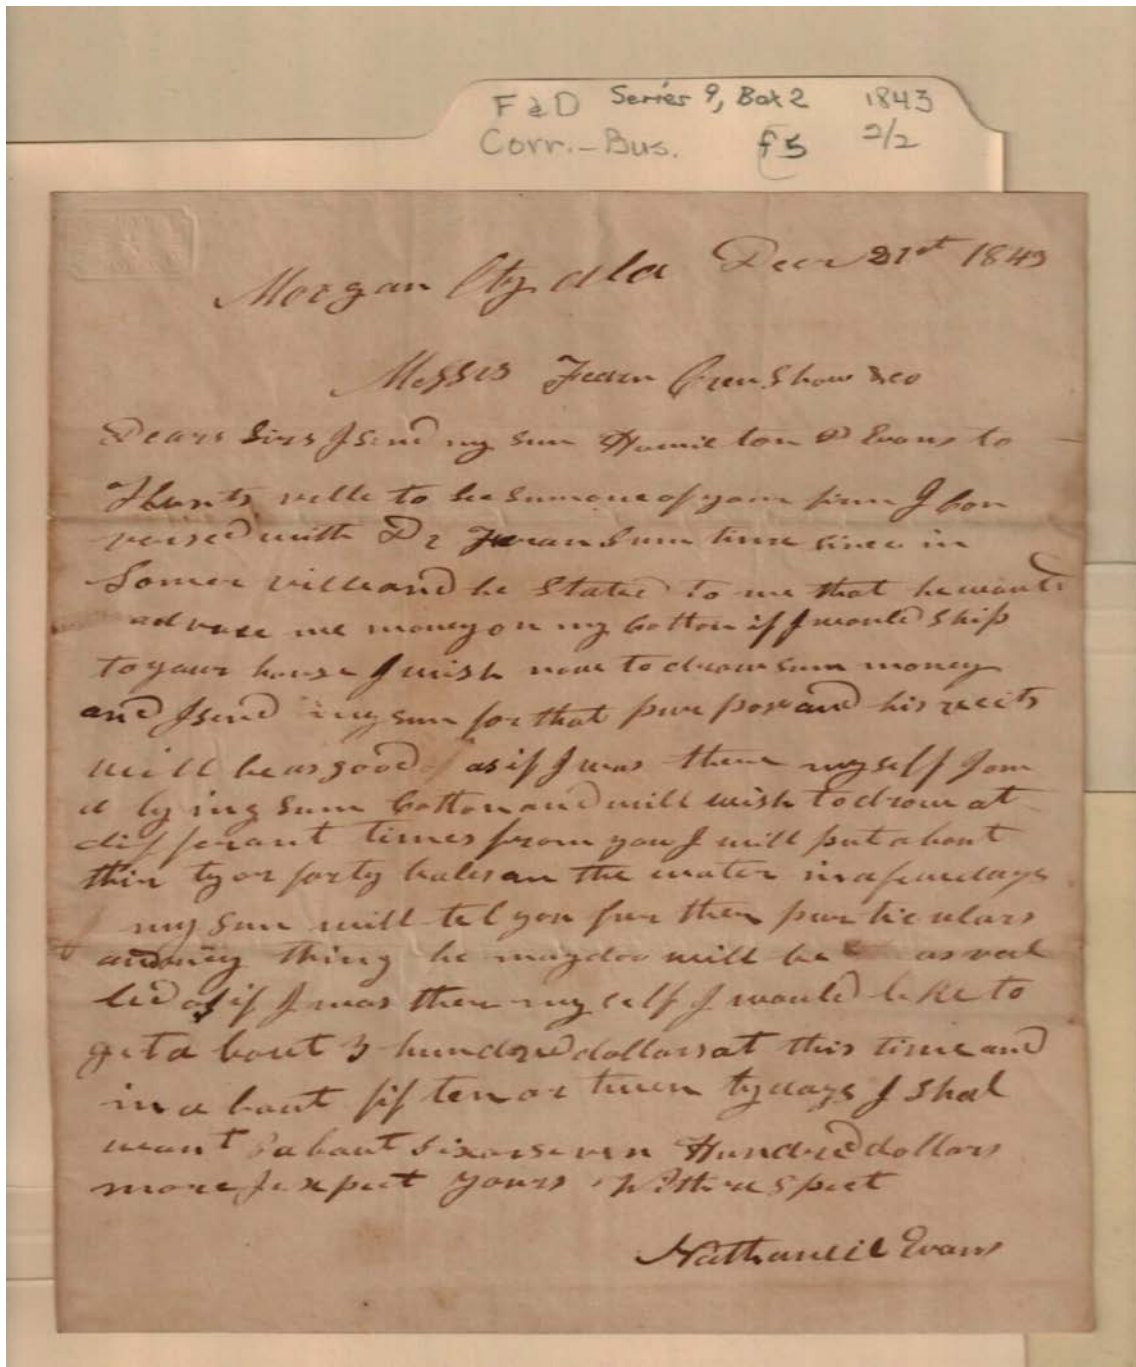 F & D Series 9, Box 2 1843
Corr.-Bus. f5 2/2
Morgan Cty Ala Decr 21st 1843
Messrs Fearn Crenshaw &co
Dears Sirs I send my sun Hamilton P Evans to
Hunts ville to see sum one of your firm I con
versed with Dr Fearan sum time since in
Somer ville and he Stated to me that he would
advance me money on my cotton if I would Ship
to your house I wish now to draw sum money
and I send my sun for that purpose and his recits
will be as good as if I was there myself I am
a bying sum cotton and will wish to draw at
differant times from you I will put about
thir ty or forty bales on the water in a few days
my sun will tel you fur ther purticulars
and any thing he may doo will be as val
led as if I was there my self I would like to
get a bout 3 hundred dollars at this time and
in a bout fif ten or twen ty days I Shal
want a bout Six or seven Hundred dollars
more I expect yours With respect
Nathaneil Evans